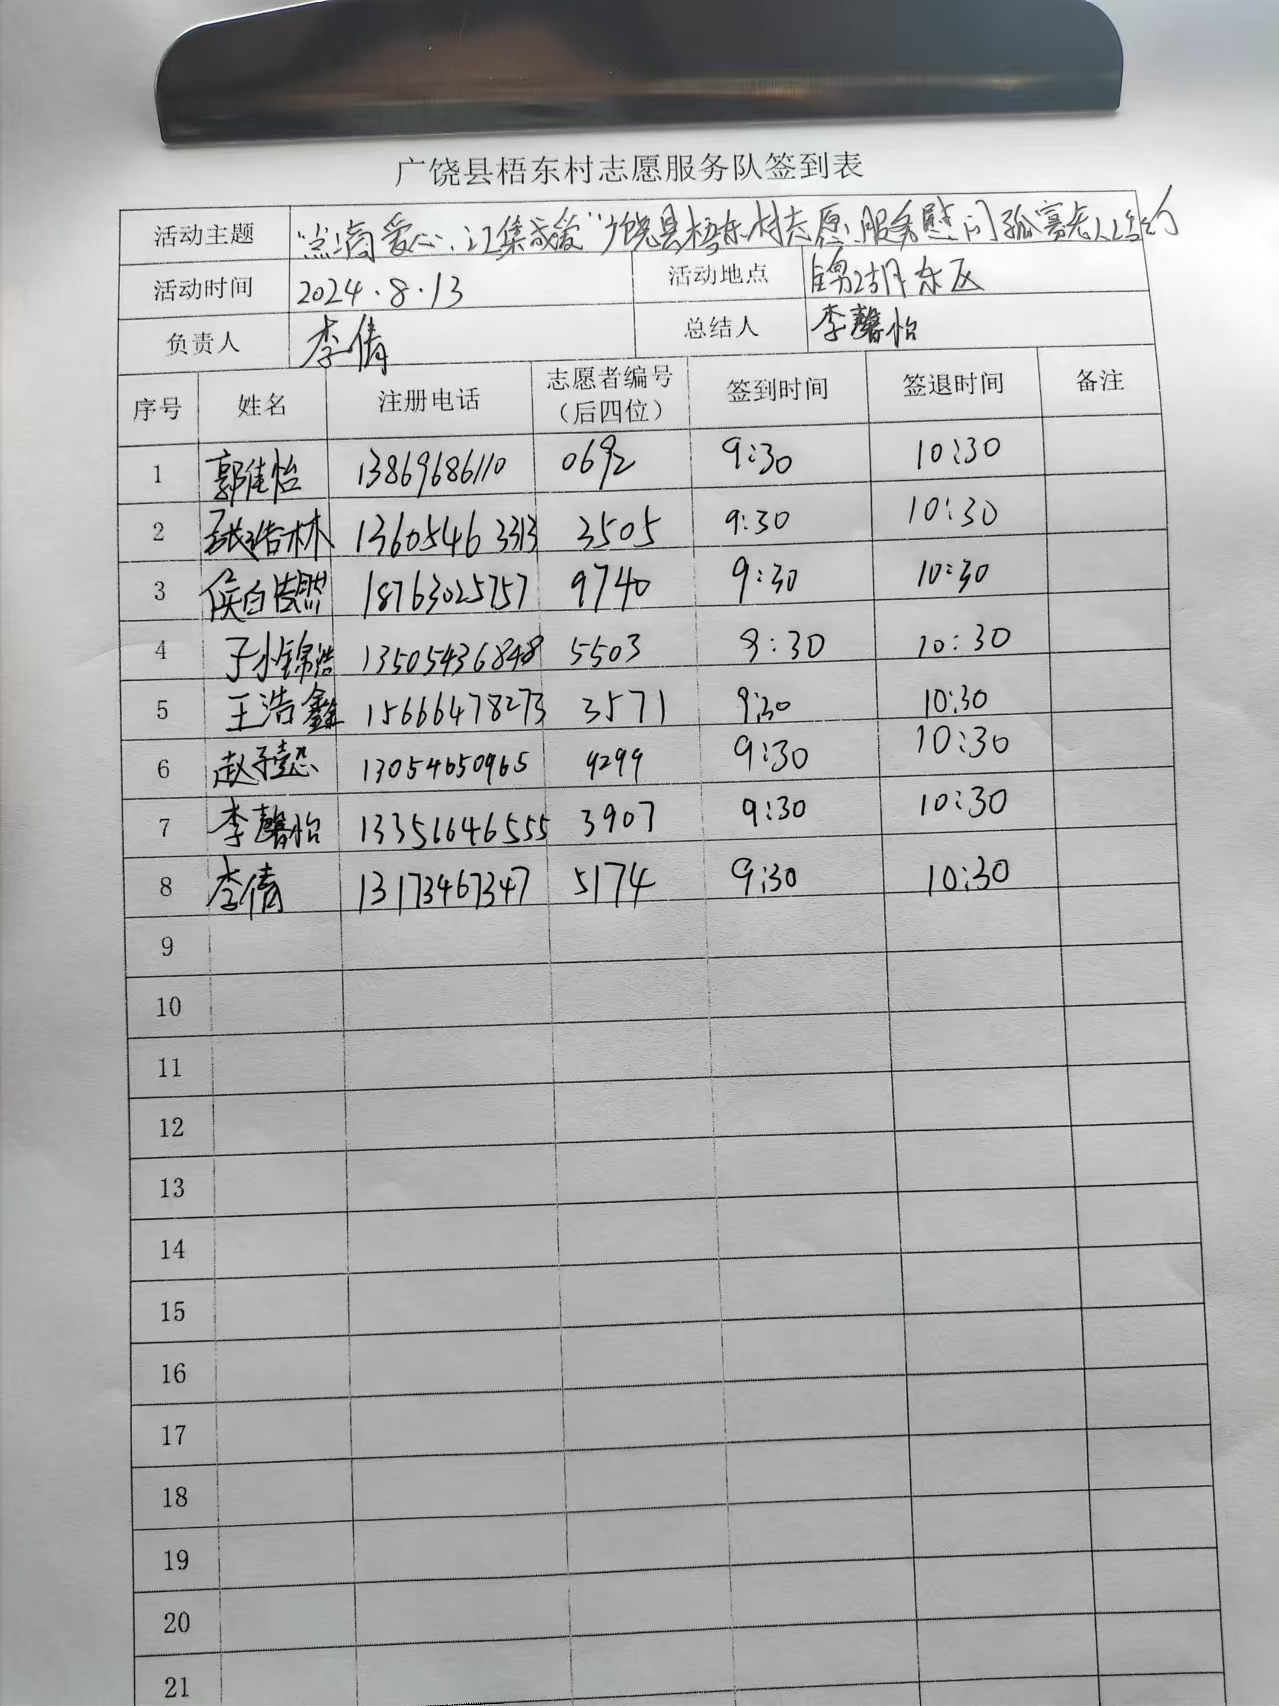 广饶县梧东村志愿服务队签到表
活动主题 "点滴爱心,汇集成爱"广饶县梧东村志愿服务慰问孤寡老人
活动时间 2024.8.13 活动地点 锦湖东区
负责人 李倩 总结人 李馨怡
序号 姓名 注册电话 志愿者编号（后四位） 签到时间 签退时间 备注
1 郭佳怡 13869686110 0692 9:30 10:30
2 张浩林 13605463313 3505 9:30 10:30
3 侯白浩然 18763025757 9740 9:30 10:30
4 锦浩 13505436848 5503 9:30 10:30
5 王浩鑫 15666478273 3571 9:30 10:30
6 赵子懿 13054650965 9299 9:30 10:30
7 李馨怡 13351646555 3907 9:30 10:30
8 李倩 13173467347 5174 9:30 10:30
9
10
11
12
13
14
15
16
17
18
19
20
21